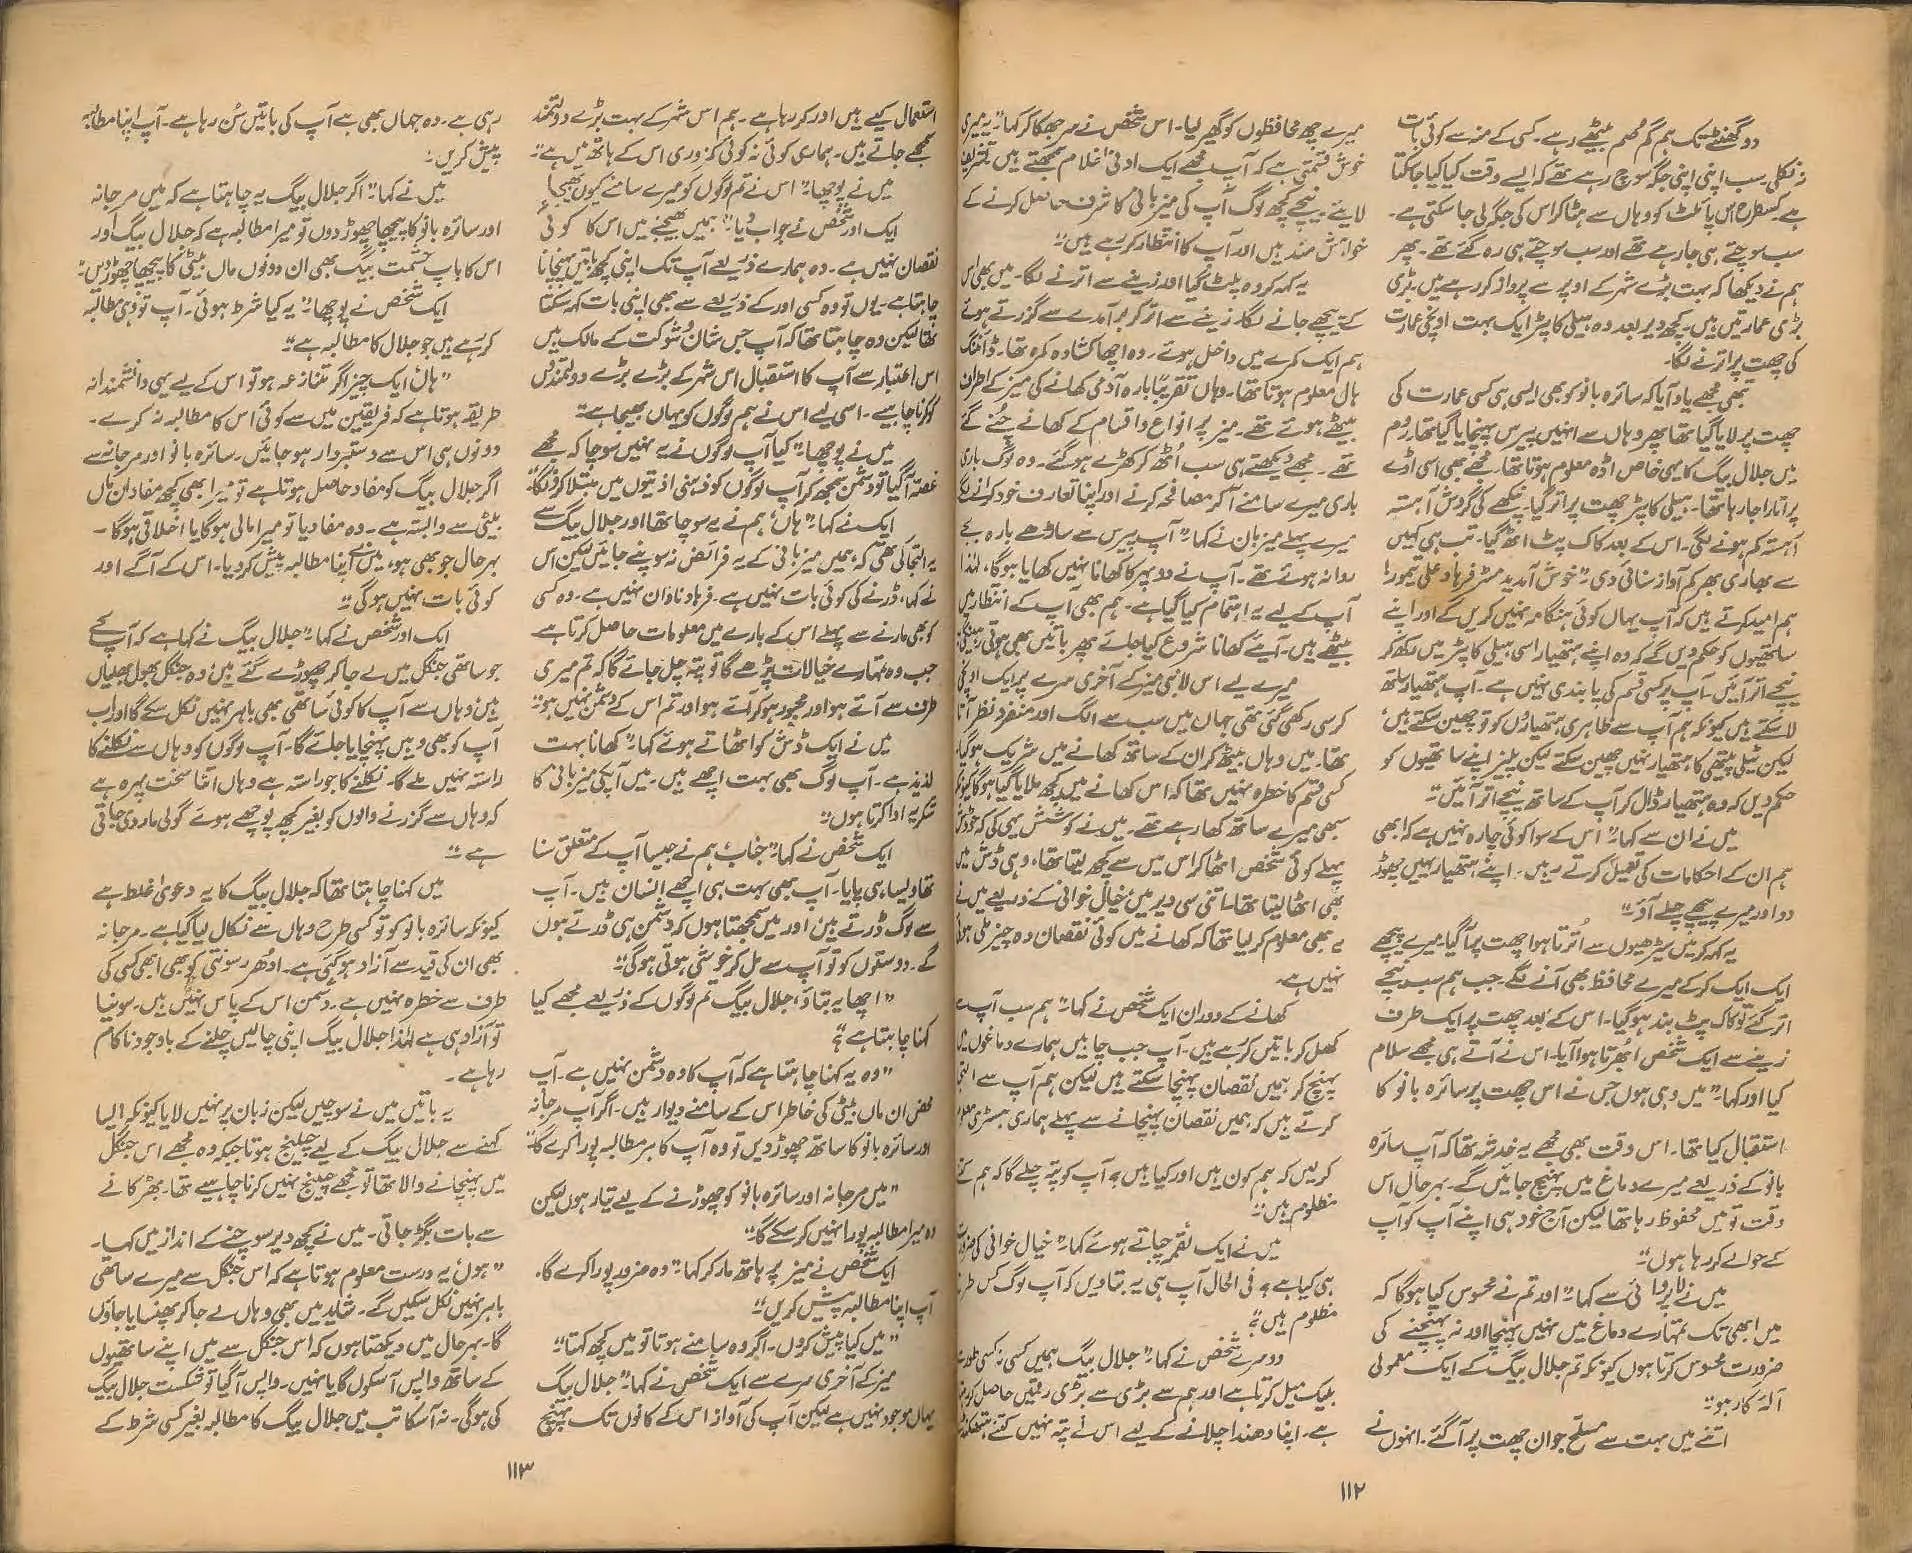 دو گھنٹے تک ہم گم صُم بیٹھے رہے۔ کسی کے منہ سے کوئی بات
نہ نکلی۔ سب اپنی اپنی جگہ سوچ رہے تھے کہ ایسے وقت کیا کیا جاسکتا
ہے۔ کسطرح اس پائلٹ کو وہاں سے ہٹا کر اس کی جگہ لی جا سکتی ہے۔
سب سوچتے ہی جا رہے تھے اور سب سوچتے ہی رہ گئے تھے۔ پھر
ہم نے دیکھا کہ بہت بڑے شہر کے اوپر سے پرواز کر رہے ہیں۔ بڑی
بڑی عمارتیں ہیں۔ کچھ دیر بعد وہ ہیلی کاپٹر ایک بہت اونچی عمارت
کی چھت پر اترنے لگا۔
تبھی مجھے یاد آیا کہ سائرہ بانو کو بھی ایسی ہی کسی عمارت کی
چھت پر لایا گیا تھا پھر وہاں سے انہیں پیرس پہنچایا گیا تھا۔ روم
میں جلال بیگ کا یہی خاص اڈہ معلوم ہوتا تھا۔ مجھے بھی اسی اڈے
پر اتارا جا رہا تھا۔ ہیلی کاپٹر چھت پر اتر گیا۔ پنکھے کی گردش آہستہ
آہستہ کم ہونے لگی۔ اس کے بعد کاک پٹ اٹھ گیا۔ تب ہی کہیں
سے بھاری بھرکم آواز سنائی دی: "خوش آمدید مسٹر فرہاد علی تیمور!
ہم امید کرتے ہیں کہ آپ یہاں کوئی ہنگامہ نہیں کریں گے اور اپنے
ساتھیوں کو حکم دیں گے کہ وہ اپنے ہتھیار اسی ہیلی کاپٹر میں رکھ کر
نیچے اتر آئیں۔ آپ پر کسی قسم کی پابندی نہیں ہے۔ آپ ہتھیار ساتھ
لا سکتے ہیں کیونکہ ہم آپ سے ظاہری ہتھیاروں کو تو چھین سکتے ہیں،
لیکن ٹیلی پیتھی کا ہتھیار نہیں چھین سکتے لیکن پلیز اپنے ساتھیوں کو
حکم دیں کہ وہ ہتھیار ڈال کر آپ کے ساتھ نیچے اتر آئیں۔"
میں نے ان سے کہا: "اس کے سوا کوئی چارہ نہیں ہے کہ ابھی
ہم ان کے احکامات کی تعمیل کرتے رہیں۔ اپنے ہتھیار یہیں چھوڑ
دو اور میرے پیچھے چلے آؤ۔"
یہ کہہ کر میں سیڑھیوں سے اُترتا ہوا چھت پر آ گیا۔ میرے پیچھے
ایک ایک کر کے میرے محافظ بھی آنے لگے۔ جب ہم سب نیچے
اتر گئے تو کاک پٹ بند ہو گیا۔ اس کے بعد چھت پر ایک طرف
زینے سے ایک شخص ابھرتا ہوا آیا۔ اس نے آتے ہی مجھے سلام
کیا اور کہا: "میں وہی ہوں جس نے اس چھت پر سائرہ بانو کا
استقبال کیا تھا۔ اس وقت بھی مجھے یہ خدشہ تھا کہ آپ سائرہ
بانو کے ذریعے میرے دماغ میں پہنچ جائیں گے۔ بہرحال اس
وقت تو میں محفوظ رہا تھا لیکن آج خود ہی اپنے آپ کو آپ
کے حوالے کر رہا ہوں۔"
میں نے لاپروائی سے کہا: "اور تم نے محسوس کیا ہو گا کہ
میں ابھی تک تمہارے دماغ میں نہیں پہنچا اور نہ پہنچنے کی
ضرورت محسوس کرتا ہوں کیونکہ تم جلال بیگ کے ایک معمولی
آلۂ کار ہو۔"
اتنے میں بہت سے مسلح جوان چھت پر آ گئے۔ انہوں نے
میرے چھ محافظوں کو گھیر لیا۔ اس شخص نے سر جھکا کر کہا: "یہ میری
خوش قسمتی ہے کہ آپ مجھے ایک ادنیٰ غلام سمجھتے ہیں۔ تشریف
لائیے۔ نیچے کچھ لوگ آپ کی میزبانی کا شرف حاصل کرنے کے
خواہش مند ہیں اور آپ کا انتظار کر رہے ہیں۔"
یہ کہہ کر وہ پلٹ گیا اور زینے سے اترنے لگا۔ میں بھی اس
کے پیچھے جانے لگا۔ زینے سے اتر کر برآمدے سے گزرتے ہوئے
ہم ایک کمرے میں داخل ہوئے۔ وہ اچھا کشادہ کمرہ تھا۔ ڈائننگ
ہال معلوم ہوتا تھا۔ وہاں تقریباً بارہ آدمی کھانے کی میز کے اطراف
بیٹھے ہوئے تھے۔ میز پر انواع و اقسام کے کھانے چُنے گئے
تھے۔ مجھے دیکھتے ہی سب اُٹھ کر کھڑے ہو گئے۔ وہ لوگ باری
باری میرے سامنے آ کر مصافحہ کرنے اور اپنا تعارف خود کرانے لگے
میرے پہلے میزبان نے کہا: "آپ پیرس سے ساڑھے بارہ بجے
روانہ ہوئے تھے۔ آپ نے دوپہر کا کھانا نہیں کھایا ہو گا، لہٰذا
آپ کے لیے یہ اہتمام کیا گیا ہے۔ ہم بھی آپ کے انتظار میں
بیٹھے ہیں۔ آئیے کھانا شروع کیا جائے پھر باتیں بھی ہوتی رہینگی
میرے لیے اس لانبی میز کے آخری سرے پر ایک اونچی
کرسی رکھی گئی تھی جہاں میں سب سے الگ اور منفرد نظر آتا
تھا۔ میں وہاں بیٹھ کر ان کے ساتھ کھانے میں شریک ہو گیا،
کسی قسم کا خطرہ نہیں تھا کہ اس کھانے میں کچھ ملایا گیا ہو گا کیونکہ
سبھی میرے ساتھ کھا رہے تھے۔ میں نے کوشش یہی کی کہ خود
پہلے کوئی شخص اٹھا کر اس میں سے کچھ لیتا تھا، وہی ڈش میں
بھی اٹھا لیتا تھا۔ اتنی سی دیر میں خیال خوانی کے ذریعے میں نے
یہ بھی معلوم کر لیا تھا کہ کھانے میں کوئی نقصان دہ چیز ملی ہوئی
نہیں ہے۔
کھانے کے دوران ایک شخص نے کہا: "ہم سب آپ سے
کھل کر باتیں کر رہے ہیں۔ آپ جب چاہیں ہمارے دماغوں میں
پہنچ کر ہمیں نقصان پہنچا سکتے ہیں لیکن ہم آپ سے التجا
کرتے ہیں کہ ہمیں نقصان پہنچانے سے پہلے ہماری ہسٹری معلوم
کر لیں کہ ہم کون ہیں اور کیا ہیں؟ آپ کو پتہ چلے گا کہ ہم کتنے
مظلوم ہیں۔"
میں نے ایک لقمہ چباتے ہوئے کہا: "خیال خوانی کی ضرورت
ہی کیا ہے؟ فی الحال آپ ہی یہ بتا دیں کہ آپ لوگ کس طرح
مظلوم ہیں؟"
دوسرے شخص نے کہا: "جلال بیگ ہمیں کسی نہ کسی طرح
بلیک میل کرتا ہے اور ہم سے بڑی سے بڑی رقمیں حاصل کرتا
ہے۔ اپنا دھندا چلانے کے لیے اس نے پتہ نہیں کتنے ہتھکنڈے
۱۱۲
استعمال کیے ہیں اور کر رہا ہے۔ ہم اس شہر کے بہت بڑے دولتمند
سمجھے جاتے ہیں۔ ہماری کوئی نہ کوئی کمزوری اس کے ہاتھ میں ہے۔"
میں نے پوچھا: "اس نے تم لوگوں کو میرے سامنے کیوں بھیجا؟"
ایک اور شخص نے جواب دیا: "ہمیں بھیجنے میں اس کا کوئی
نقصان نہیں ہے۔ وہ ہمارے ذریعے آپ تک اپنی کچھ باتیں پہنچانا
چاہتا ہے۔ یوں تو وہ کسی اور کے ذریعے سے بھی اپنی بات کہہ سکتا
تھا لیکن وہ چاہتا تھا کہ آپ جس شان و شوکت کے مالک ہیں
اس اعتبار سے آپ کا استقبال اس شہر کے بڑے بڑے دولتمندوں
کو کرنا چاہیے۔ اسی لیے اس نے ہم لوگوں کو یہاں بھیجا ہے۔"
میں نے پوچھا: "کیا آپ لوگوں نے یہ نہیں سوچا کہ مجھے
غصہ آ گیا تو دشمن سمجھ کر آپ لوگوں کو ذہنی اذیتوں میں مبتلا کر دونگا؟"
ایک نے کہا: "ہاں، ہم نے یہ سوچا تھا اور جلال بیگ سے
یہ التجا کی تھی کہ ہمیں میزبانی کے یہ فرائض نہ سونپے جائیں لیکن اس
نے کہا، ڈرنے کی کوئی بات نہیں ہے۔ فرہاد نادان نہیں ہے۔ وہ کسی
کو بھی مارنے سے پہلے اس کے بارے میں معلومات حاصل کرتا ہے
جب وہ تمہارے خیالات پڑھے گا تو پتہ چل جائے گا کہ تم میری
طرف سے آئے ہو اور مجبور ہو کر آئے ہو اور تم اس کے دشمن نہیں ہو۔"
میں نے ایک ڈش کو اٹھاتے ہوئے کہا: "کھانا بہت
لذیذ ہے۔ آپ لوگ بھی بہت اچھے ہیں۔ میں آپکی میزبانی کا
شکریہ ادا کرتا ہوں۔"
ایک شخص نے کہا: "جناب، ہم نے جیسا آپ کے متعلق سنا
تھا ویسا ہی پایا۔ آپ بھی بہت ہی اچھے انسان ہیں۔ آپ
سے لوگ ڈرتے ہیں اور میں سمجھتا ہوں کہ دشمن ہی ڈرتے ہوں
گے۔ دوستوں کو تو آپ سے مل کر خوشی ہوتی ہو گی۔"
"اچھا یہ بتاؤ، جلال بیگ تم لوگوں کے ذریعے مجھے کیا
کہنا چاہتا ہے؟"
"وہ یہ کہنا چاہتا ہے کہ آپ کا وہ دشمن نہیں ہے۔ آپ
محض ان ماں بیٹی کی خاطر اس کے سامنے دیوار ہیں۔ اگر آپ مرجانہ
اور سائرہ بانو کا ساتھ چھوڑ دیں تو وہ آپ کا ہر مطالبہ پورا کرے گا۔"
"میں مرجانہ اور سائرہ بانو کو چھوڑنے کے لیے تیار ہوں لیکن
وہ میرا مطالبہ پورا نہیں کر سکے گا۔"
ایک شخص نے میز پر ہاتھ مار کر کہا: "وہ ضرور پورا کرے گا۔
آپ اپنا مطالبہ پیش کریں۔"
"میں کیا پیش کروں۔ اگر وہ سامنے ہوتا تو میں کچھ کہتا۔"
میز کے آخری سرے سے ایک شخص نے کہا: "جلال بیگ
یہاں موجود نہیں ہے لیکن آپ کی آواز اس کے کانوں تک پہنچ
رہی ہے۔ وہ جہاں بھی ہے آپ کی باتیں سُن رہا ہے۔ آپ اپنا مطالبہ
پیش کریں۔"
میں نے کہا: "اگر جلال بیگ یہ چاہتا ہے کہ میں مرجانہ
اور سائرہ بانو کا پیچھا چھوڑ دوں تو میرا مطالبہ ہے کہ جلال بیگ اور
اس کا باپ حشمت بیگ بھی ان دونوں ماں بیٹی کا پیچھا چھوڑ دیں۔"
ایک شخص نے پوچھا: "یہ کیا شرط ہوئی۔ آپ تو وہی مطالبہ
کر رہے ہیں جو جلال کا مطالبہ ہے۔"
"ہاں، ایک چیز اگر متنازعہ ہو تو اس کے لیے یہی دانشمندانہ
طریقہ ہوتا ہے کہ فریقین میں سے کوئی اس کا مطالبہ نہ کرے۔
دونوں ہی اس سے دستبردار ہو جائیں۔ سائرہ بانو اور مرجانہ سے
اگر جلال بیگ کو مفاد حاصل ہوتا ہے تو میرا بھی کچھ مفاد ان ماں
بیٹی سے وابستہ ہے۔ وہ مفاد یا تو میرا مالی ہو گا یا اخلاقی ہو گا۔
بہرحال جو بھی ہو، میں نے اپنا مطالبہ پیش کر دیا۔ اس کے آگے اور
کوئی بات نہیں ہو گی۔"
ایک اور شخص نے کہا: "جلال بیگ نے کہا ہے کہ آپ کے
جو ساتھی جنگل میں لے جا کر چھوڑے گئے ہیں، وہ جنگل بھول بھلیاں
ہیں، وہاں سے آپ کا کوئی ساتھی بھی باہر نہیں نکل سکے گا اور اب
آپ کو بھی وہیں پہنچایا جائے گا۔ آپ لوگوں کو وہاں سے نکلنے کا
راستہ نہیں ملے گا۔ نکلنے کا جو راستہ ہے وہاں اتنا سخت پہرہ ہے
کہ وہاں سے گزرنے والوں کو بغیر کچھ پوچھے ہوئے گولی مار دی جاتی
ہے۔"
میں کہنا چاہتا تھا کہ جلال بیگ کا یہ دعویٰ غلط ہے
کیونکہ سائرہ بانو کو تو کسی طرح وہاں سے نکال لیا گیا ہے۔ مرجانہ
بھی ان کی قید سے آزاد ہو گئی ہے۔ ادھر رسونتی کو بھی ابھی کسی کی
طرف سے خطرہ نہیں ہے۔ دشمن اس کے پاس نہیں ہیں۔ سونیا
تو آزاد ہی ہے لہٰذا جلال بیگ اپنی چالیں چلنے کے باوجود ناکام
رہا ہے۔
یہ باتیں میں نے سوچیں لیکن زبان پر نہیں لایا کیونکہ ایسا
کہنے سے جلال بیگ کے لیے چیلنج ہوتا جبکہ وہ مجھے اس جنگل
میں پہنچانے والا تھا تو مجھے چیلنج نہیں کرنا چاہیے تھا۔ بھڑکانے
سے بات بگڑ جاتی۔ میں نے کچھ دیر سوچنے کے انداز میں کہا۔
"ہوں، یہ درست معلوم ہوتا ہے کہ اس جنگل سے میرے ساتھی
باہر نہیں نکل سکیں گے۔ شاید میں بھی وہاں لے جا کر پھنسایا جاؤں
گا۔ بہرحال میں دیکھتا ہوں کہ اس جنگل سے میں اپنے ساتھیوں
کے ساتھ واپس آ سکوں گا یا نہیں۔ واپس آ گیا تو شکست جلال بیگ
کی ہو گی۔ نہ آ سکا تب میں جلال بیگ کا مطالبہ بغیر کسی شرط کے
۱۱۳